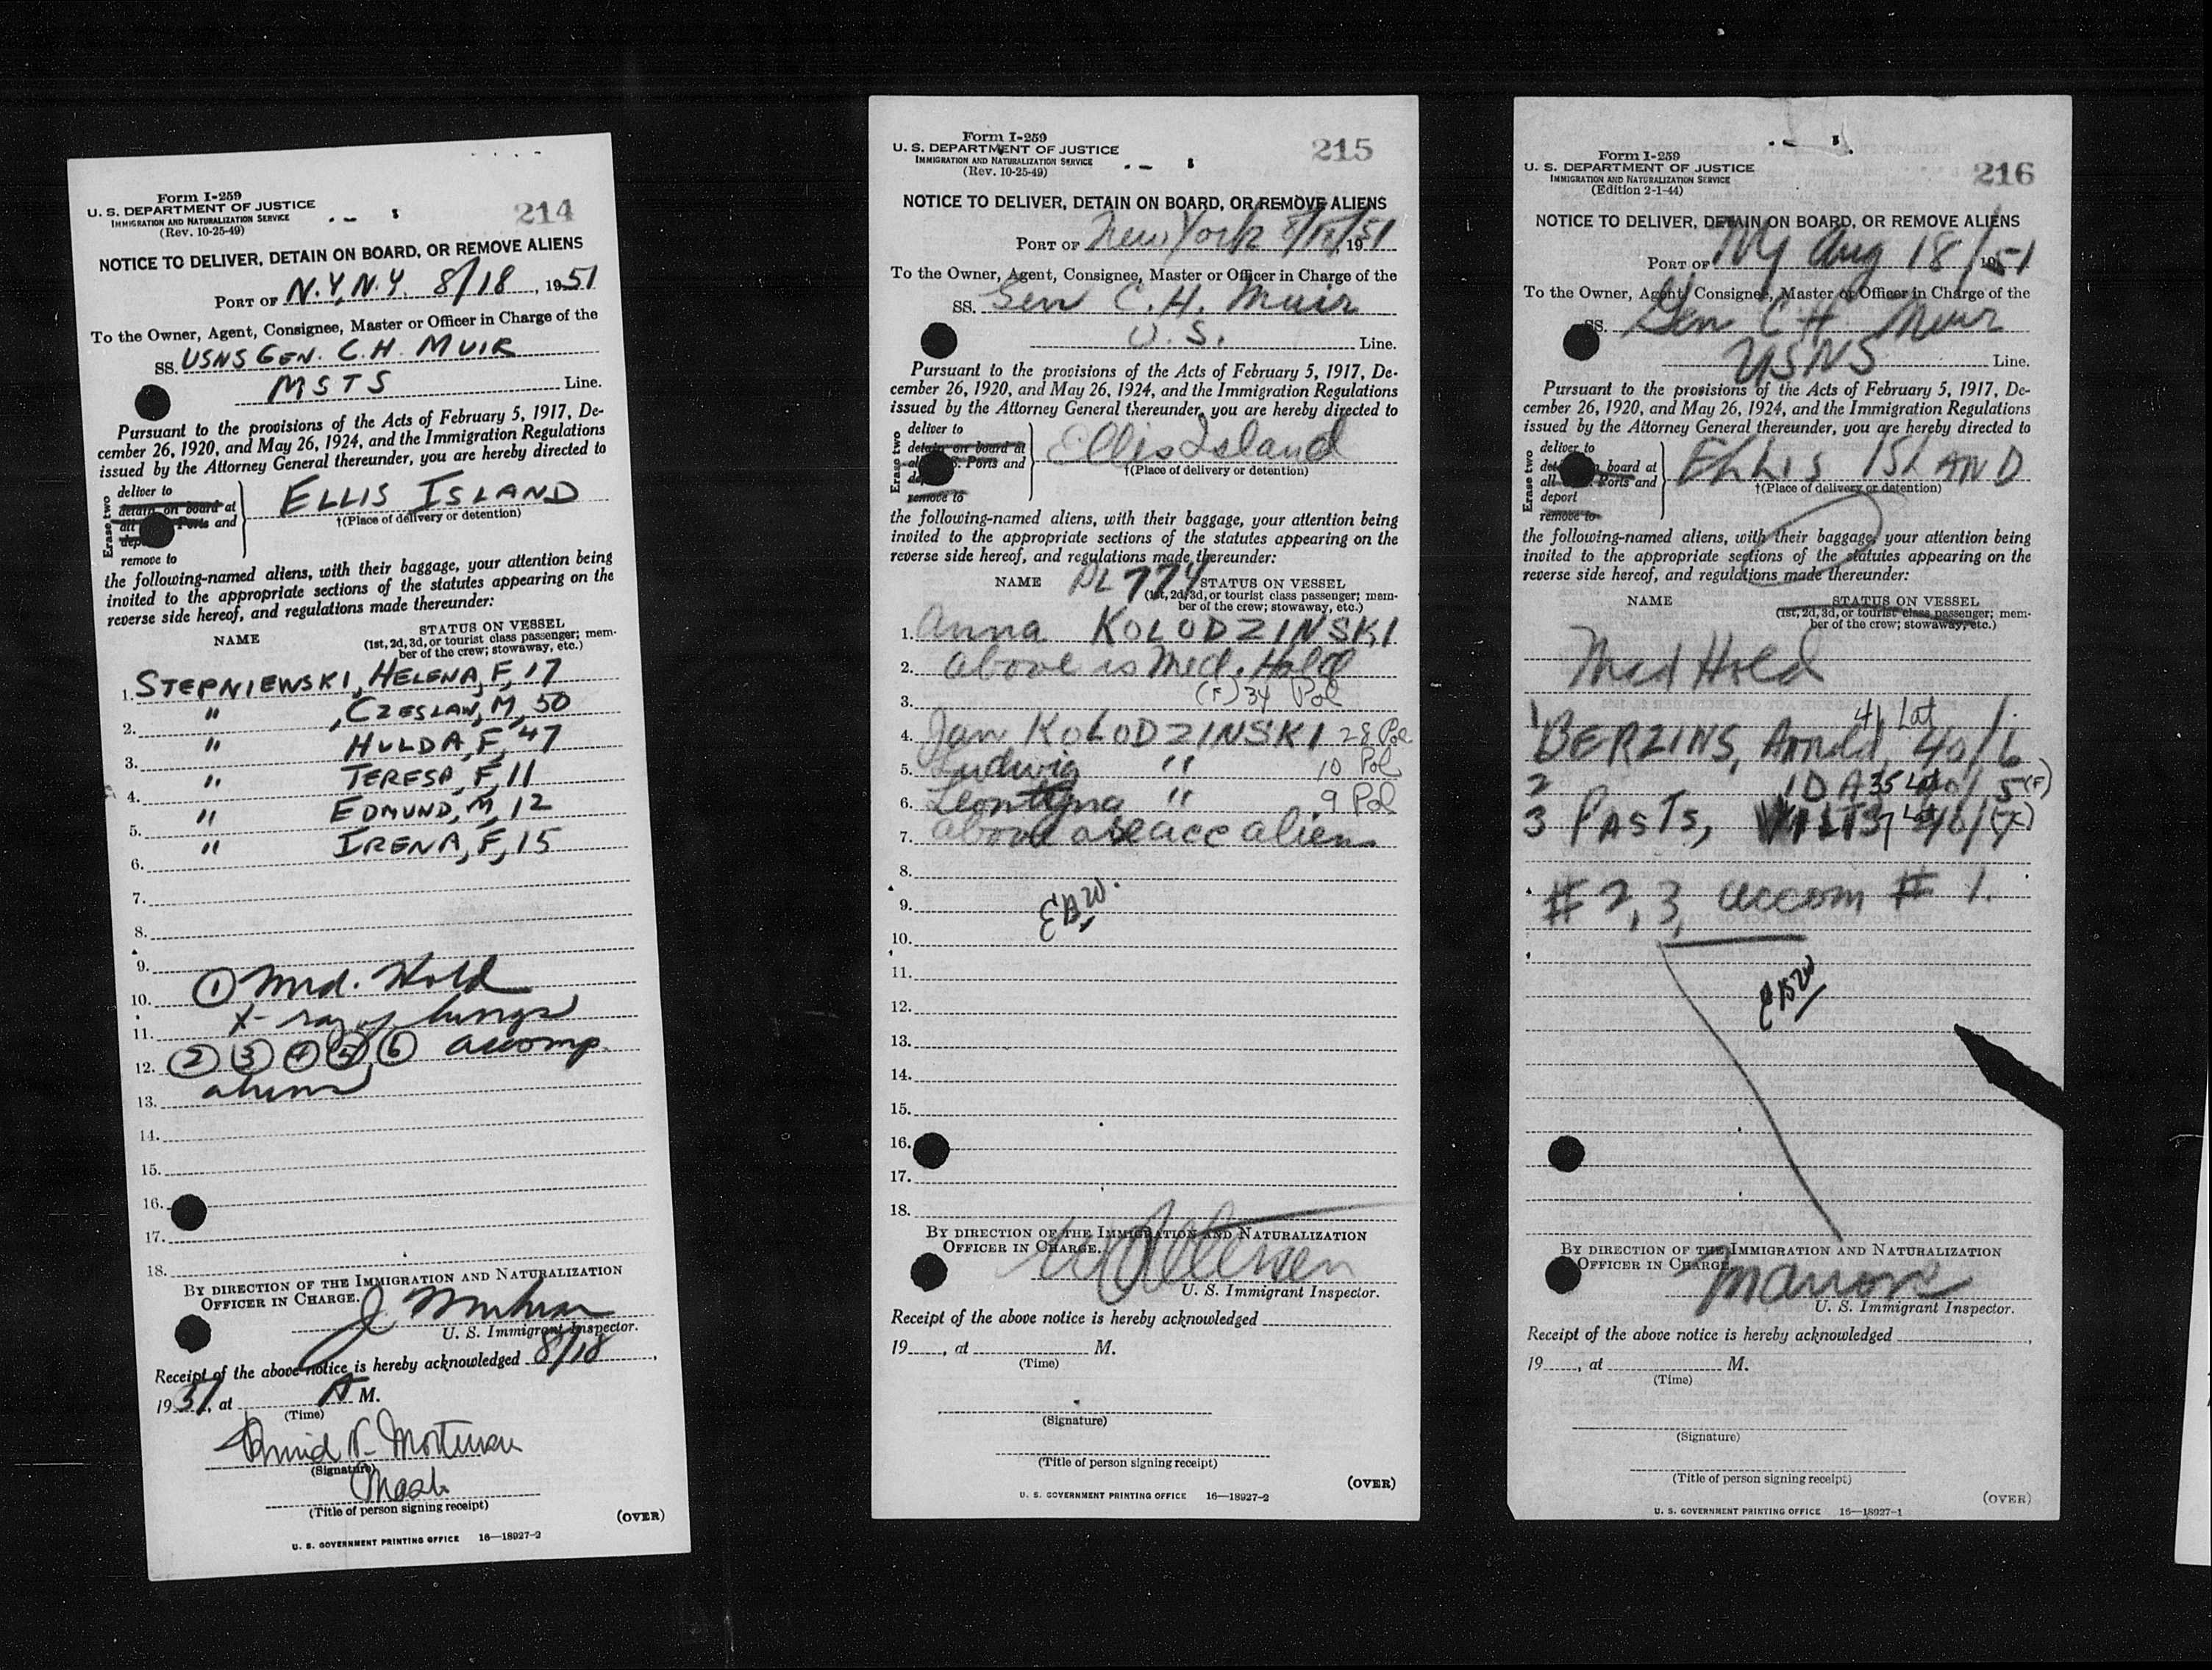 Form I-259
U. S. DEPARTMENT OF JUSTICE
IMMIGRATION AND NATURALIZATION SERVICE
(Rev. 10-25-49)
214
NOTICE TO DELIVER, DETAIN ON BOARD, OR REMOVE ALIENS
PORT OF N.Y, N.Y. 8/18, 1951
To the Owner, Agent, Consignee, Master or Officer in Charge of the
SS. USNS GEN. C.H. MUIR
MSTS Line.
Pursuant to the provisions of the Acts of February 5, 1917, De-
cember 26, 1920, and May 26, 1924, and the Immigration Regulations
issued by the Attorney General thereunder, you are hereby directed to
Erase two
deliver to
detain on board at
all Ports and
dep
remove to
ELLIS ISLAND
†(Place of delivery or detention)
the following-named aliens, with their baggage, your attention being
invited to the appropriate sections of the statutes appearing on the
reverse side hereof, and regulations made thereunder:
NAME STATUS ON VESSEL
(1st, 2d, 3d, or tourist class passenger; mem-
ber of the crew; stowaway, etc.)
1. STEPNIEWSKI, HELENA, F, 17
2. " , CZESLAW, M, 50
3. " HULDA, F, 47
4. " TERESA, F, 11
5. " EDMUND, M, 12
6. " IRENA, F, 15
7.
8.
9.
10. ① Med. Hold
11. X-ray of lungs
12. ② ③ ④ ⑤ ⑥ accomp.
13. aliens
14.
15.
16.
17.
18.
BY DIRECTION OF THE IMMIGRATION AND NATURALIZATION
OFFICER IN CHARGE.
U. S. Immigrant Inspector.
Receipt of the above notice is hereby acknowledged 8/18,
1951, at A M.
(Time)
(Signature)
(Title of person signing receipt)
(OVER)
U. S. GOVERNMENT PRINTING OFFICE 16—18927-2
Form I-259
U. S. DEPARTMENT OF JUSTICE
IMMIGRATION AND NATURALIZATION SERVICE
(Rev. 10-25-49)
215
NOTICE TO DELIVER, DETAIN ON BOARD, OR REMOVE ALIENS
PORT OF New York 8/18/1951
To the Owner, Agent, Consignee, Master or Officer in Charge of the
SS. Gen C.H. Muir
U.S. Line.
Pursuant to the provisions of the Acts of February 5, 1917, De-
cember 26, 1920, and May 26, 1924, and the Immigration Regulations
issued by the Attorney General thereunder, you are hereby directed to
Erase two
deliver to
detain on board at
al S. Ports and
de
remove to
Ellis Island
†(Place of delivery or detention)
the following-named aliens, with their baggage, your attention being
invited to the appropriate sections of the statutes appearing on the
reverse side hereof, and regulations made thereunder:
NAME PL 774 STATUS ON VESSEL
(1st, 2d, 3d, or tourist class passenger; mem-
ber of the crew; stowaway, etc.)
1. Anna KOLODZINSKI
2. above is Med. Hold
3. (F) 34 Pol
4. Jan KOLODZINSKI 28 Pol
5. Ludwig " 10 Pol
6. Leontyna " 9 Pol
7. above are acc aliens
8.
9. EBW.
10.
11.
12.
13.
14.
15.
16.
17.
18.
BY DIRECTION OF THE IMMIGRATION AND NATURALIZATION
OFFICER IN CHARGE.
U. S. Immigrant Inspector.
Receipt of the above notice is hereby acknowledged
19 , at M.
(Time)
(Signature)
(Title of person signing receipt)
(OVER)
U. S. GOVERNMENT PRINTING OFFICE 16—18927-2
Form I-259
U. S. DEPARTMENT OF JUSTICE
IMMIGRATION AND NATURALIZATION SERVICE
(Edition 2-1-44)
216
NOTICE TO DELIVER, DETAIN ON BOARD, OR REMOVE ALIENS
PORT OF NY Aug 18/1951
To the Owner, Agent, Consignee, Master or Officer in Charge of the
SS. Gen C H Muir
USNS Line.
Pursuant to the provisions of the Acts of February 5, 1917, De-
cember 26, 1920, and May 26, 1924, and the Immigration Regulations
issued by the Attorney General thereunder, you are hereby directed to
Erase two
deliver to
det board at
all Ports and
deport
remove to
ELLIS ISLAND
†(Place of delivery or detention)
the following-named aliens, with their baggage, your attention being
invited to the appropriate sections of the statutes appearing on the
reverse side hereof, and regulations made thereunder:
NAME STATUS ON VESSEL
(1st, 2d, 3d, or tourist class passenger; mem-
ber of the crew; stowaway, etc.)
Med Hold
41 Lat
1 BERZINS, Arnold, 40/6
2 IDA 35 Lat 40/5 (F)
3 PASTS, 40/7
# 2, 3, accom # 1.
EBW
BY DIRECTION OF THE IMMIGRATION AND NATURALIZATION
OFFICER IN CHARGE.
U. S. Immigrant Inspector.
Receipt of the above notice is hereby acknowledged ,
19 , at M.
(Time)
(Signature)
(Title of person signing receipt)
(OVER)
U. S. GOVERNMENT PRINTING OFFICE 16—18927-1